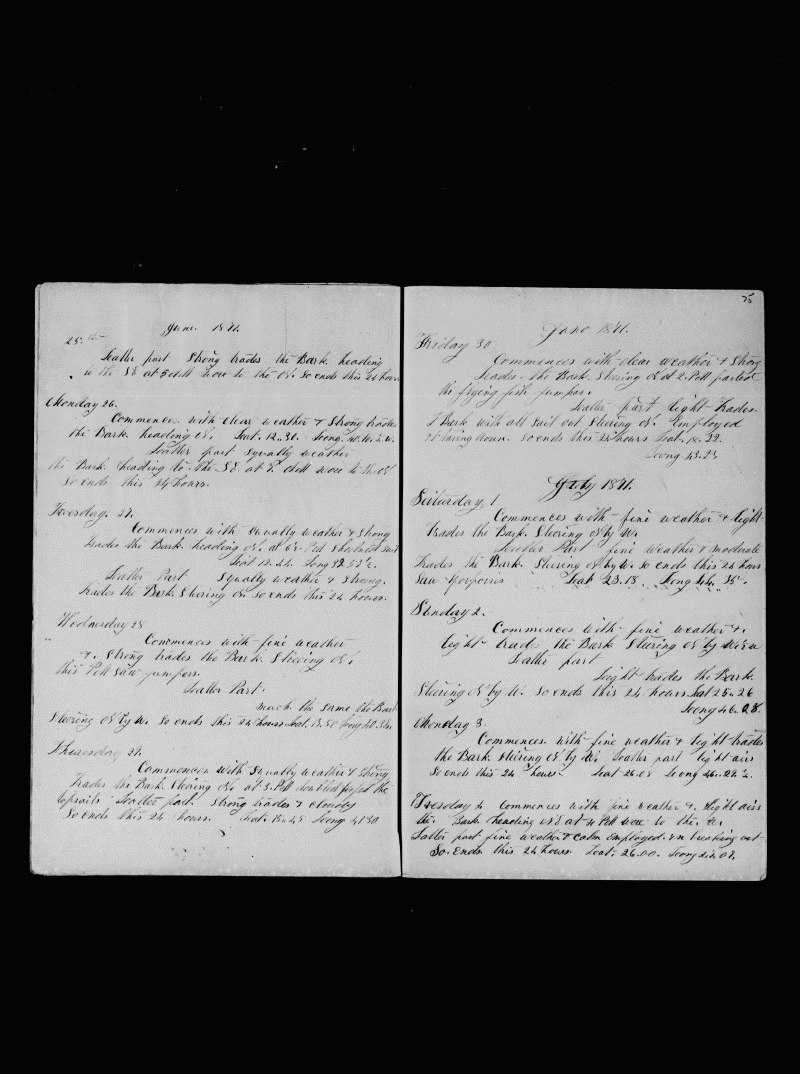 June 1871.
25th
Latter part Strong trades the Bark heading
to the SE at 5 AM wore to the N. So ends this 24 hours
Monday 26.
Commences with clear weather & Strong trades
the Bark heading N. Lat. 12..31. Long.
Latter part squally weather
the Bark heading to the SE. at 7. AM wore to the N
So ends this 24 hours.
Tuesday. 27.
Commences with squally weather & Strong
trades the Bark heading N. at 6 PM Shortend sail
Lat 12.24. Long 39.
Latter Part Squally weather & Strong.
trades the Bark Steering N. So ends this 24 hours.
Wednesday 28
Commences with fine weather
& Strong trades the Bark. Steering N.
this PM Saw jumpers.
Latter Part.
much the same the Bark
Steering N by W. So ends this 24 hours Lat. Long 40.
Thuresday 29.
Commences with Squally weather & Strong
Trades the Bark Steering N. at 5. PM doubled reefed the
topsails; Latter part. Strong trades & cloudy
So ends this 24 hours. Lat. Long 41 30
75
June 1871.
Friday 30
Commences with clear weather & Strong
trades the Bark. Steering at 2 PM parted
the flying jib jumper.
Latter part light trades
& Bark with all sail out Steering N. Employed
So ends this 24 hours Lat. 22.
Long 43.23
July 1871.
Saturday 1
Commences with fine weather & light
trades the Bark Steering N by W.
Latter Part fine weather & moderate
trades the Bark. Steering N by W. So ends this 24 hours
Saw Porpoises Lat 23.18 Long 44. 35
Sunday 2.
Commences with fine weather &
light trades the Bark Steering N by
Latter part
Light trades the Bark
Steering N by W. So ends this 24 hours Lat 25..26
Long 46..08.
Monday 3.
Commences with fine weather & light trades
the Bark steering N by W; Latter part light airs
So ends this 24 hours. Lat 26.08 Long 46..
Tuesday 4 Commences with fine weather & light airs
the Bark heading at 4 PM wore to the
Latter part fine weather & calm employed in breaking out
So. Ends this 24 hours Lat. 26.00. Long